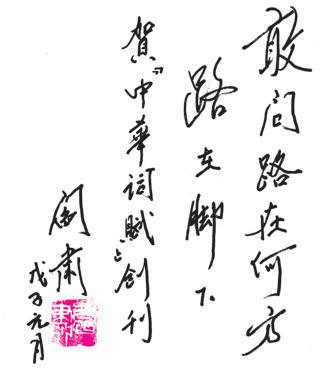 敢问路在何方
路在脚下
賀“中華词賦”創刊
阎肃
戊子元月